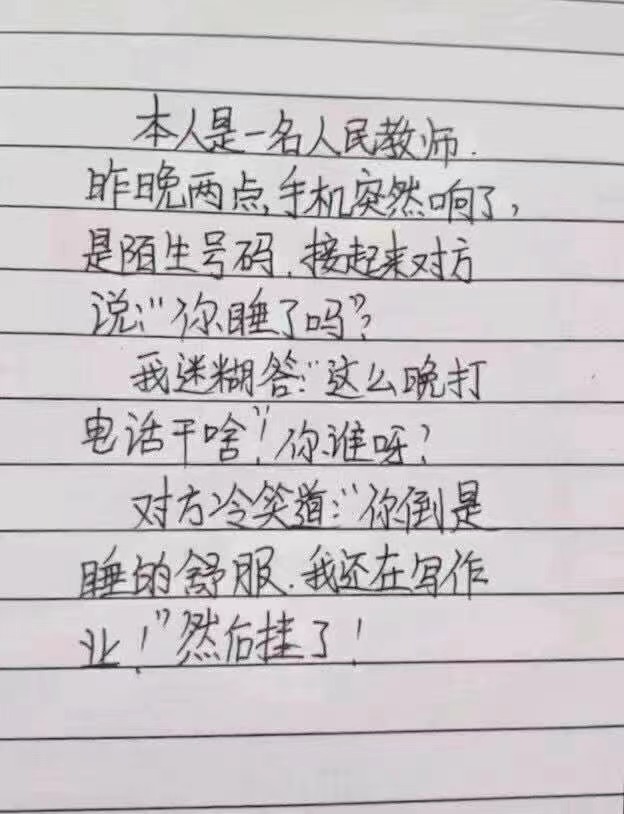 本人是一名人民教师.
昨晚两点,手机突然响了,
是陌生号码.接起来对方
说:“你睡了吗”?
我迷糊答:“这么晚打
电话干啥”!你谁呀?
对方冷笑道:“你倒是
睡的舒服.我还在写作
业!”然后挂了!